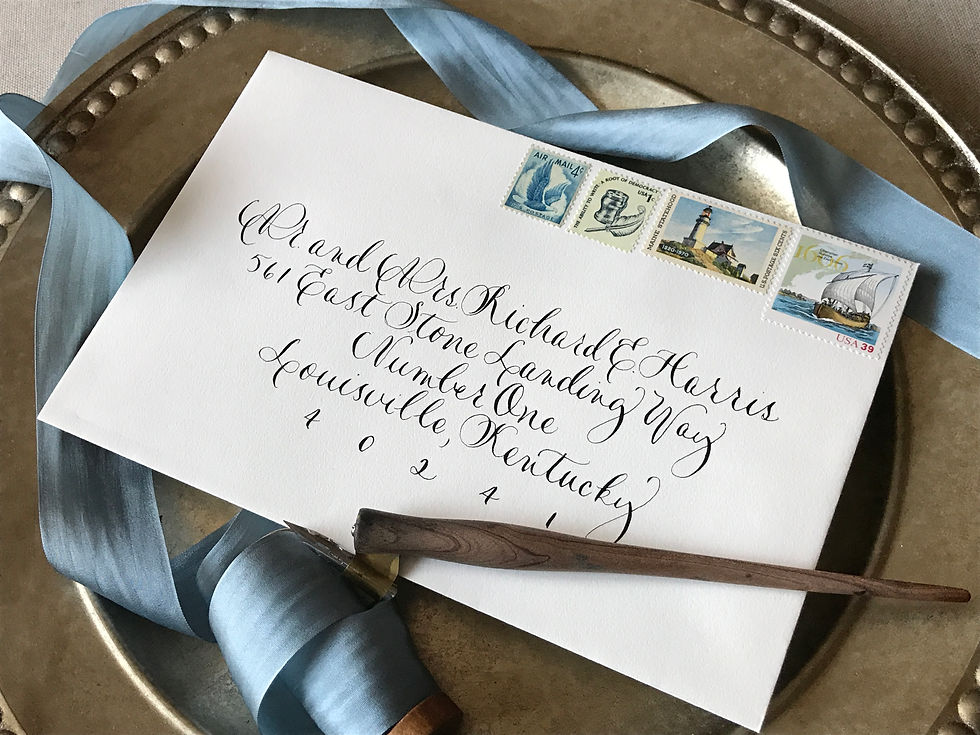 Mr. and Mrs. Richard E. Harris
561 East Stone Landing Way
Number One
Louisville, Kentucky
4 0 2 4 1
AIR MAIL 4¢
U.S. POSTAGE
THE ABILITY TO WRITE · A ROOT OF DEMOCRACY
USA 1¢
MAINE STATEHOOD
1820-1970
U.S. POSTAGE SIX CENTS
1606
USA 39